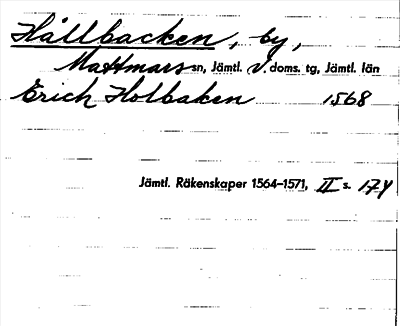 Hållbacken, by,
Mattmars sn, Jämtl. V. doms. tg, Jämtl. län
Erich Holbaken 1568
Jämtl. Räkenskaper 1564–1571, II s. 174